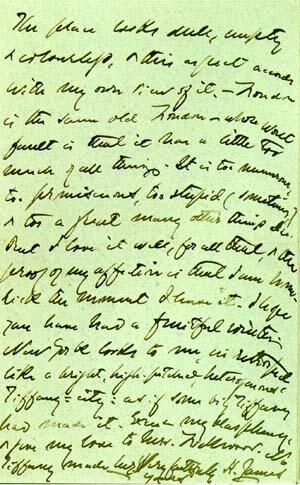 The place looks dull, empty
& colourless, & this aspect accords
with my own view of it. — London
is the same old London — whose worst
fault is that it has a little too
much of all things. It is too numerous,
too promiscuous, too stupid (sometimes)
& too a great many other things else.
But I love it well, for all that, & the
proof of my affection is that I am home-
sick the moment I leave it. I hope
you have had a fruitful winter.
New York looks to me, in retrospect
like a bright, high-pitched, heterogeneous
Tiffany-city: as if some big Tiffany
had made it. Excuse my blasphemy,
& give my love to Mrs. Lockwood.
Tiffany made her! Very faithfully
yours H. James